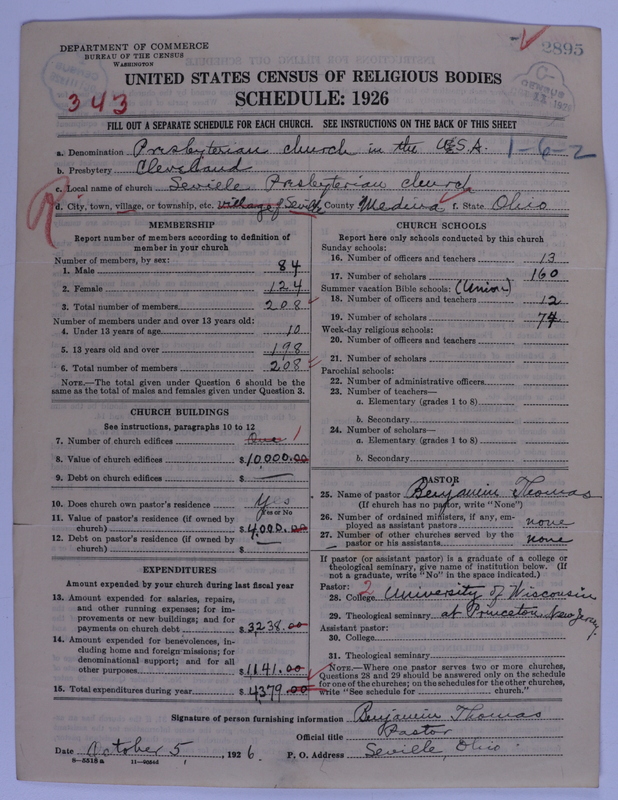 DEPARTMENT OF COMMERCE
BUREAU OF THE CENSUS
WASHINGTON
2895
UNITED STATES CENSUS OF RELIGIOUS BODIES
343
SCHEDULE: 1926
CENSUS
FILL OUT A SEPARATE SCHEDULE FOR EACH CHURCH. SEE INSTRUCTIONS ON THE BACK OF THIS SHEET
a. Denomination Presbyterian church in the U.S.A. 1-6-2
b. Presbytery Cleveland
c. Local name of church Seville Presbyterian church
d. City, town, village, or township, etc. Village of Seville County Medina f. State Ohio
MEMBERSHIP
Report number of members according to definition of
member in your church
Number of members, by sex:
1. Male 84
2. Female 124
3. Total number of members 208
Number of members under and over 13 years old:
4. Under 13 years of age 10
5. 13 years old and over 198
6. Total number of members 208
NOTE.—The total given under Question 6 should be the
same as the total of males and females given under Question 3.
CHURCH BUILDINGS
See instructions, paragraphs 10 to 12
7. Number of church edifices One 1
8. Value of church edifices $10,000.00
9. Debt on church edifices $ —
10. Does church own pastor's residence Yes
Yes or No
11. Value of pastor's residence (if owned by
church) $4,000.00
12. Debt on pastor's residence (if owned by
church) $ —
EXPENDITURES
Amount expended by your church during last fiscal year
13. Amount expended for salaries, repairs,
and other running expenses; for im-
provements or new buildings; and for
payments on church debt $3238.00
14. Amount expended for benevolences, in-
cluding home and foreign missions; for
denominational support; and for all
other purposes $1141.00
15. Total expenditures during year $4379.00
CHURCH SCHOOLS
Report here only schools conducted by this church
Sunday schools:
16. Number of officers and teachers 13
17. Number of scholars 160
Summer vacation Bible schools: (Union)
18. Number of officers and teachers 12
19. Number of scholars 74
Week-day religious schools:
20. Number of officers and teachers
21. Number of scholars
Parochial schools:
22. Number of administrative officers
23. Number of teachers—
a. Elementary (grades 1 to 8)
b. Secondary
24. Number of scholars—
a. Elementary (grades 1 to 8)
b. Secondary
PASTOR
25. Name of pastor Benjamin Thomas
(If church has no pastor, write "None")
26. Number of ordained ministers, if any, em-
ployed as assistant pastors none
27. Number of other churches served by the
pastor or his assistants none
If pastor (or assistant pastor) is a graduate of a college or
theological seminary, give name of institution below. (If
not a graduate, write "No" in the space indicated.)
Pastor: 2
28. College University of Wisconsin
29. Theological seminary at Princeton, New Jersey.
Assistant pastor:
30. College
31. Theological seminary
NOTE.—Where one pastor serves two or more churches,
Questions 28 and 29 should be answered only on the schedule
for one of the churches; on the schedules for the other churches,
write "See schedule for church."
Signature of person furnishing information Benjamin Thomas
Official title Pastor
Date October 5, 1926. P. O. Address Seville, Ohio.
8—5518 a